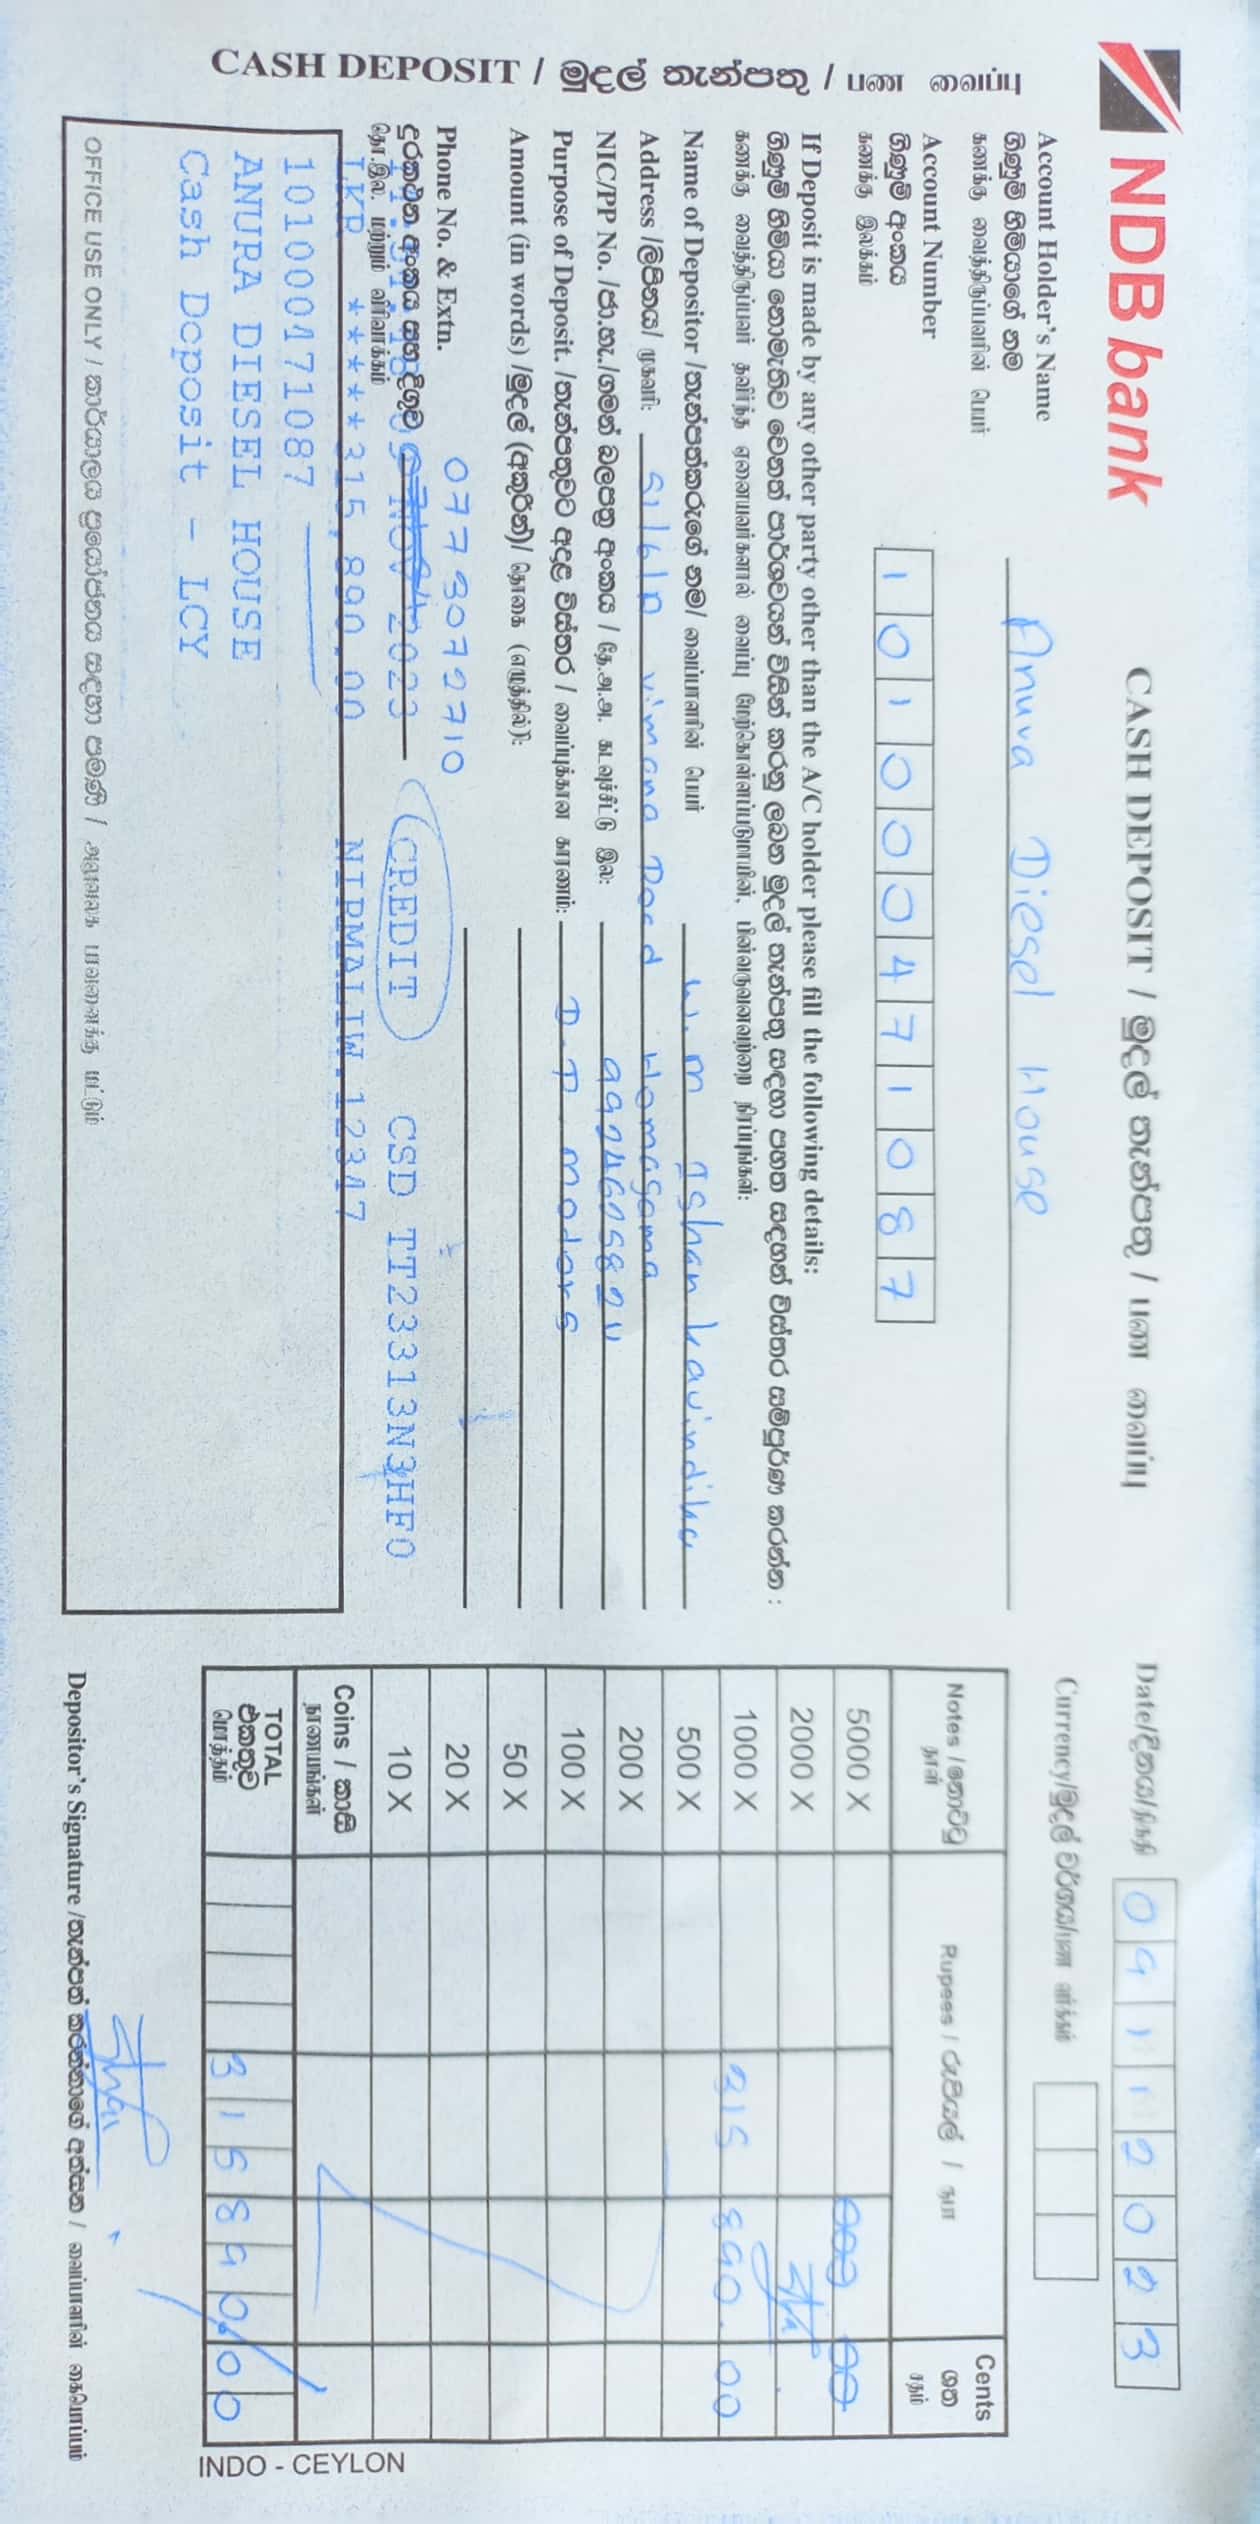 NDB bank
CASH DEPOSIT / මුදල් තැන්පතු / பண வைப்பு
Date/දිනය/திகதி 09 11 2023
Account Holder's Name
ගිණුම් හිමියාගේ නම
கணக்கு வைத்திருப்பவரின் பெயர்
Anura Diesel House
Currency/මුදල් වර්ගය/பண வர்க்கம்
Account Number
ගිණුම් අංකය
கணக்கு இலக்கம்
101000471087
If Deposit is made by any other party other than the A/C holder please fill the following details:
ගිණුම් හිමියා නොමැතිව වෙනත් පාර්ශවයන් විසින් කරනු ලබන මුදල් තැන්පතු සඳහා පහත සඳහන් විස්තර සම්පූර්ණ කරන්න :
கணக்கு வைத்திருப்பவர் தவிர்ந்த ஏனையவர்களால் வைப்பு மேற்கொள்ளப்படுமாயின், பின்வருவனவற்றை நிரப்புங்கள்:
Name of Depositor /තැන්පත්කරුගේ නම/ வைப்பாளரின் பெயர் W.M Ishan kavindika
Address /ලිපිනය/ முகவரி: 51/6/D Vimana Road Homagama
NIC/PP No. /ජා.හැ./ගමන් බලපත්‍ර අංකය / தே.அ.அ. கடவுச்சீட்டு இல:
Purpose of Deposit. /තැන්පතුවට අදාළ විස්තර / வைப்புக்கான காரணம்: D.P. Motors
Amount (in words) /මුදල් (අකුරින්)/ தொகை (எழுத்தில்):
Phone No. & Extn.
0773072710
දුරකථන අංකය සහ දිගුව
தொ.இல. மற்றும் விரிவாக்கம்
NOV 2023 CREDIT CSD TT23313N3HF0
LKR *****315,890.00 NIRMALIW.12347
101000471087
ANURA DIESEL HOUSE
Cash Deposit - LCY
OFFICE USE ONLY / කාර්යාලය ප්‍රයෝජනය සඳහා පමණි / அலுவலக பாவனைக்கு மட்டும்
Notes / නෝට්ටු
தாள்
Rupees / රුපියල් / ரூபா
Cents
ශත
சதம்
5000 X
2000 X
1000 X 315 890.00
500 X
200 X
100 X
50 X
20 X
10 X
Coins / කාසි
நாணயங்கள்
TOTAL
එකතුව
மொத்தம்
315890.00
Depositor's Signature /තැන්පත් කරන්නාගේ අත්සන / வைப்பாளரின் கையொப்பம்
INDO - CEYLON
CASH DEPOSIT / මුදල් තැන්පතු / பண வைப்பு